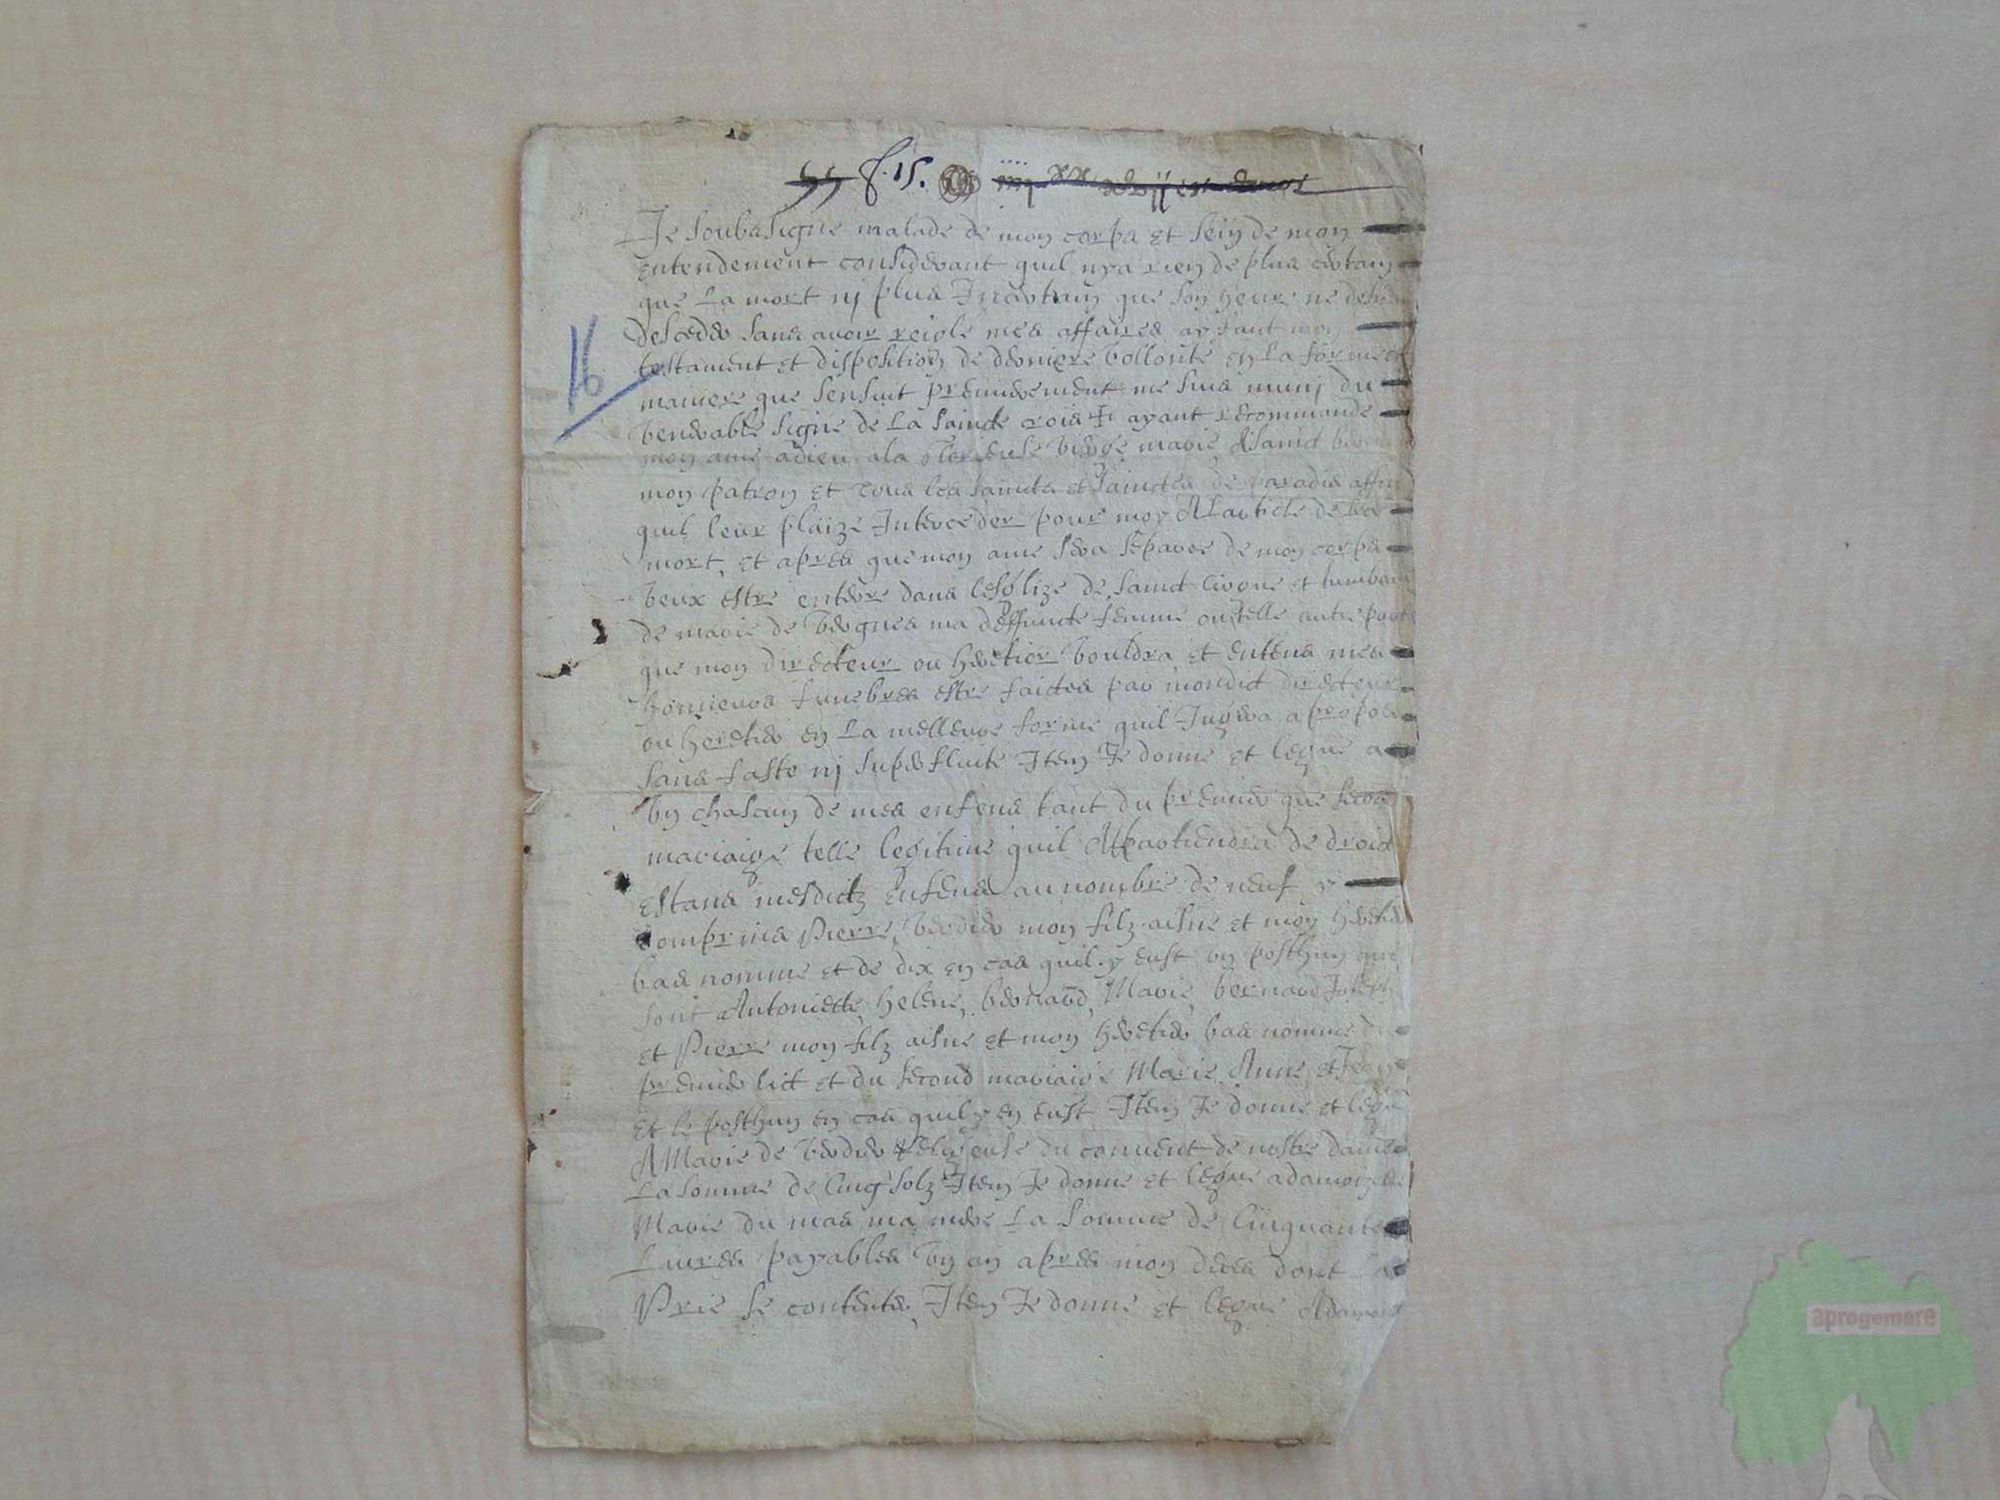 f. 15.
16
Je soubsigne malade de mon corps et sein de mon
entendement considerant quil nya rien de plus certain
que La mort nj plus Incertain que son heure ne desirant
desceder sans avoir reigle mes affaires ay faict mon
testament et disposition de derniere vollonte en La forme et
maniere que sensuit premierement me suis munj du
venerable signe de La Saincte croix Et ayant recommande
mon ame a dieu a la glorieuse vierge marie A sainct
mon patron et tous les saincts et sainctes de paradis affin
quil leur plaize Interceder pour moy A Larticle de La
mort, et apres que mon ame sera separee de mon corps
veux estre enterre dans lesglize de sainct et tumbeau
de marie de vergnes ma deffuncte femme ou telle autre part
que mon directeur ou heretier vouldra et entens mes
honneurs funebres estre faictes par mondict directeur
ou heretier en La melleure forme quil Jugera a propos
sans faste nj superfluite Item Je donne et legue a
vn chascun de mes enfens tant du premier que second
mariaige telle legitime quil Appartiendra de droict
estans mesdictz enfens au nombre de neuf y
comprins Pierre verdier mon filz aisne et mon heretier
bas nomme et de dix en cas quil y eust vn posthum qui
sont Antoniette, helene, bernard, Marie, bernard Joseph
et Pierre mon filz aisne et mon heretier bas nomme du
premier lict et du second mariaige Marie Anne et Jean
et le posthum en cas quil y en eust Item Je donne et legue
A Marie de verdier religieuse du convent de nostre dame
La somme de cinq solz Item Je donne et legue a damoizelle
Marie du mas ma mere La somme de cinquante
Livres payables vn an apres mon deces dont La
Prie se contenter, Item Je donne et legue A
aprogemere